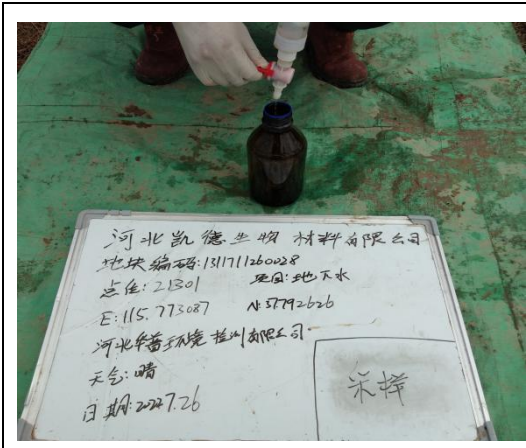 河北凯德生物材料有限公司
地块编码:1311711260028
点位:2J301 项目:地下水
E:115.773087 N:37.792626
河北华普环境检测有限公司
天气:晴
日期:2022.7.26
采样